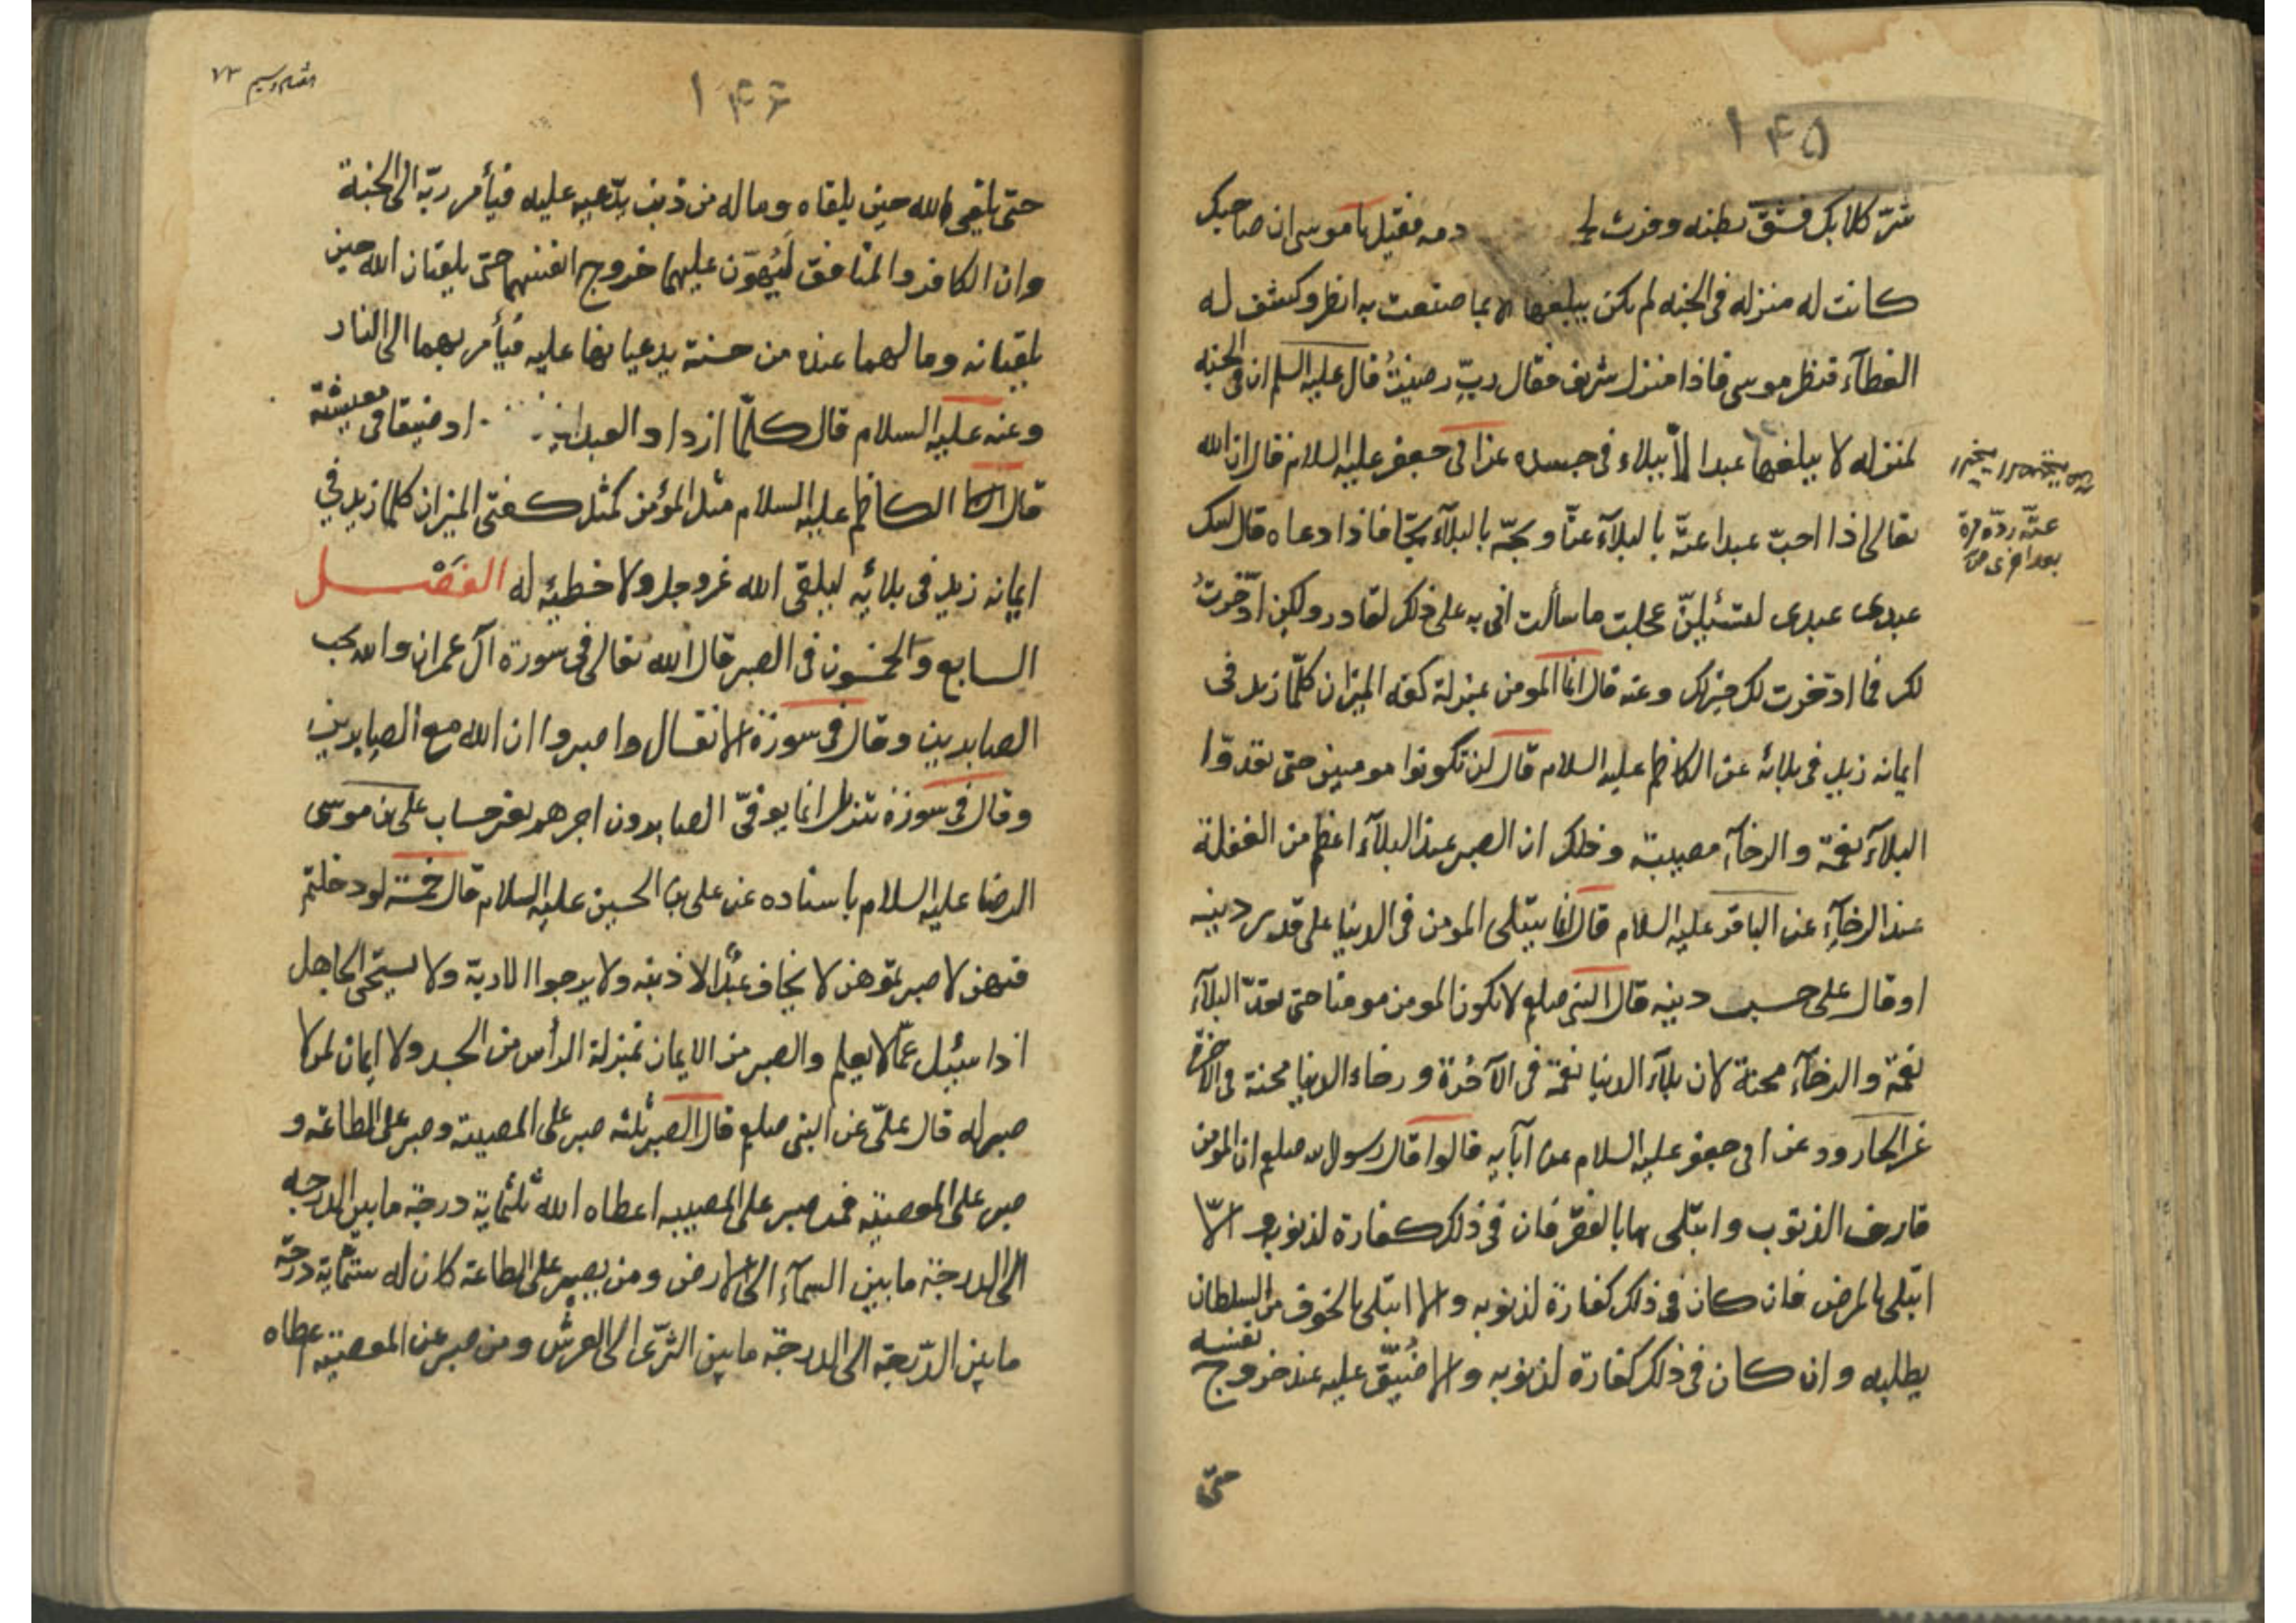 ۱۴۵
شرّ كلابك فشق بطنه وفرث دمه فقيل يا موسى ان صاحبك
كانت له منزله فى الجنه لم يكن يبلغها الا بما صنعت به انظر وكشف له
الغطآء فنظر موسى فاذا منزل شريف فقال ربّ رضيتُ قال عليه السلم ان فى الجنه
لمنزله لا يبلغها عبدا الّا ببلاء فى جسده عن ابى جعفر عليه السلام قال ان الله
تعالى اذا احبّ عبدا غتّه بالبلآء غتّا وثجّه بالبلآء ثجّا فاذا دعاه قال لبيك
عبدى عبدى لئن عجلت ما سألت انى به على ذلك لقادر ولكن ادّخرتُ
لك فما ادّخرت لك خير لك وعنه قال انما المومن بمنزلة كفه الميزان كلّما زيد فى
ايمانه زيد فى بلائه عن الكاظم عليه السلام قال لن تكونوا مومنين حتى تعدّوا
البلآء نعمة والرخآء مصيبة وذلك ان الصبر عند البلآء اعظم من الغفلة
عند الرخآء عن الباقر عليه السلام قال انما يبتلى المومن فى الدنيا على قدر دينه
او قال على حسب دينه قال النبى صلعم لا يكون المومن مومنا حتى يعدّ البلآء
نعمة والرخآء محنة لان بلآء الدنيا نعمة فى الآخرة ورخاء الدنيا محنة فى الآخرة
عن الجارود عن ابى جعفر عليه السلام عن آبآيه قالوا قال رسول الله صلعم ان المومن
قارف الذنوب وابتلى بها بالفقر فان فى ذلك كفارة لذنوبه و الّا
ابتلى بالمرض فان كان فى ذلك كفارة لذنوبه والا ابتلى بالخوف من السلطان
يطلبه وان كان فى ذلك كفارة لذنوبه والا ضُيّق عليه عند خروج نفسه
حتى
غتّه ردّه مرة
بعد اخرى
۱۴۶
۷۳
حتى يلقى الله حين يلقاه وما له من ذنب يدّعيه عليه فيأمر ربّه الى الجنة
وان الكافر والمنافق ليُهوّن عليهما خروج انفسهما حتى يلقيان الله حين
يلقيانه وما لهما عنده من حسنة يدعيانها عليه فيأمر بهما الى النار
وعنه عليه السلام قال كلّما ازداد العبد ا ... ازداد ضيقا فى معيشة
قال الكاظم عليه السلام مثل المؤمن كمثل كفتى الميزان كلما زيد فى
ايمانه زيد فى بلائه ليلقى الله عزوجل ولا خطيئه له الفصل
السابع والخمسون فى الصبر قال الله تعالى فى سورة آل عمران والله يحب
الصابرين وقال فى سورة الانفال واصبروا ان الله مع الصابرين
وقال فى سورة تنزيل انما يوفّى الصابرون اجرهم بغير حساب على بن موسى
الرضا عليه السلام باسناده عن على بن الحسين عليه السلام قال خمسة لو دخلتم
فيهن لا صبر بموهن لا يخاف عبدٌ الا ذنبه ولا يرجوا الا ربّه ولا يستحى الجاهل
اذا سئل عمّا لا يعلم والصبر من الايمان بمنزلة الرأس من الجسد ولا ايمان لمن لا
صبر له قال علىّ عن النبى صلعم قال الصبر ثلثه صبر على المصيبة وصبر على الطاعة و
صبر على المعصية فمن صبر على المصيبه اعطاه الله ثلثماية درجة ما بين الدرجه
الى الدرجة ما بين السمآء الى الارض ومن يصبر على الطاعة كان له ستّماية درجة
ما بين الدّرجة الى الدرجة ما بين الثرى الى العرش ومن صبر عن المعصية اعطاه